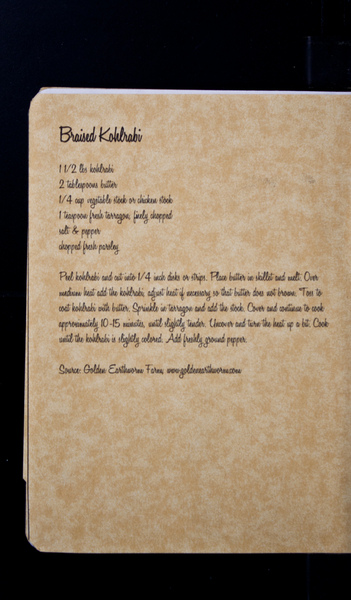 Braised Kohlrabi
1 1/2 lbs kohlrabi
2 tablespoons butter
1/4 cup vegetable stock or chicken stock
1 teaspoon fresh tarragon, finely chopped
salt & pepper
chopped fresh parsley
Peel kohlrabi and cut into 1/4 inch disks or strips. Place butter in skillet and melt. Over
medium heat add the kohlrabi, adjust heat if necessary so that butter does not brown. Toss to
coat kohlrabi with butter. Sprinkle in tarragon and add the stock. Cover and continue to cook
approximately 10-15 minutes, until slightly tender. Uncover and turn the heat up a bit. Cook
until the kohlrabi is slightly colored. Add freshly ground pepper.
Source: Golden Earthworm Farm, www.goldenearthworm.com